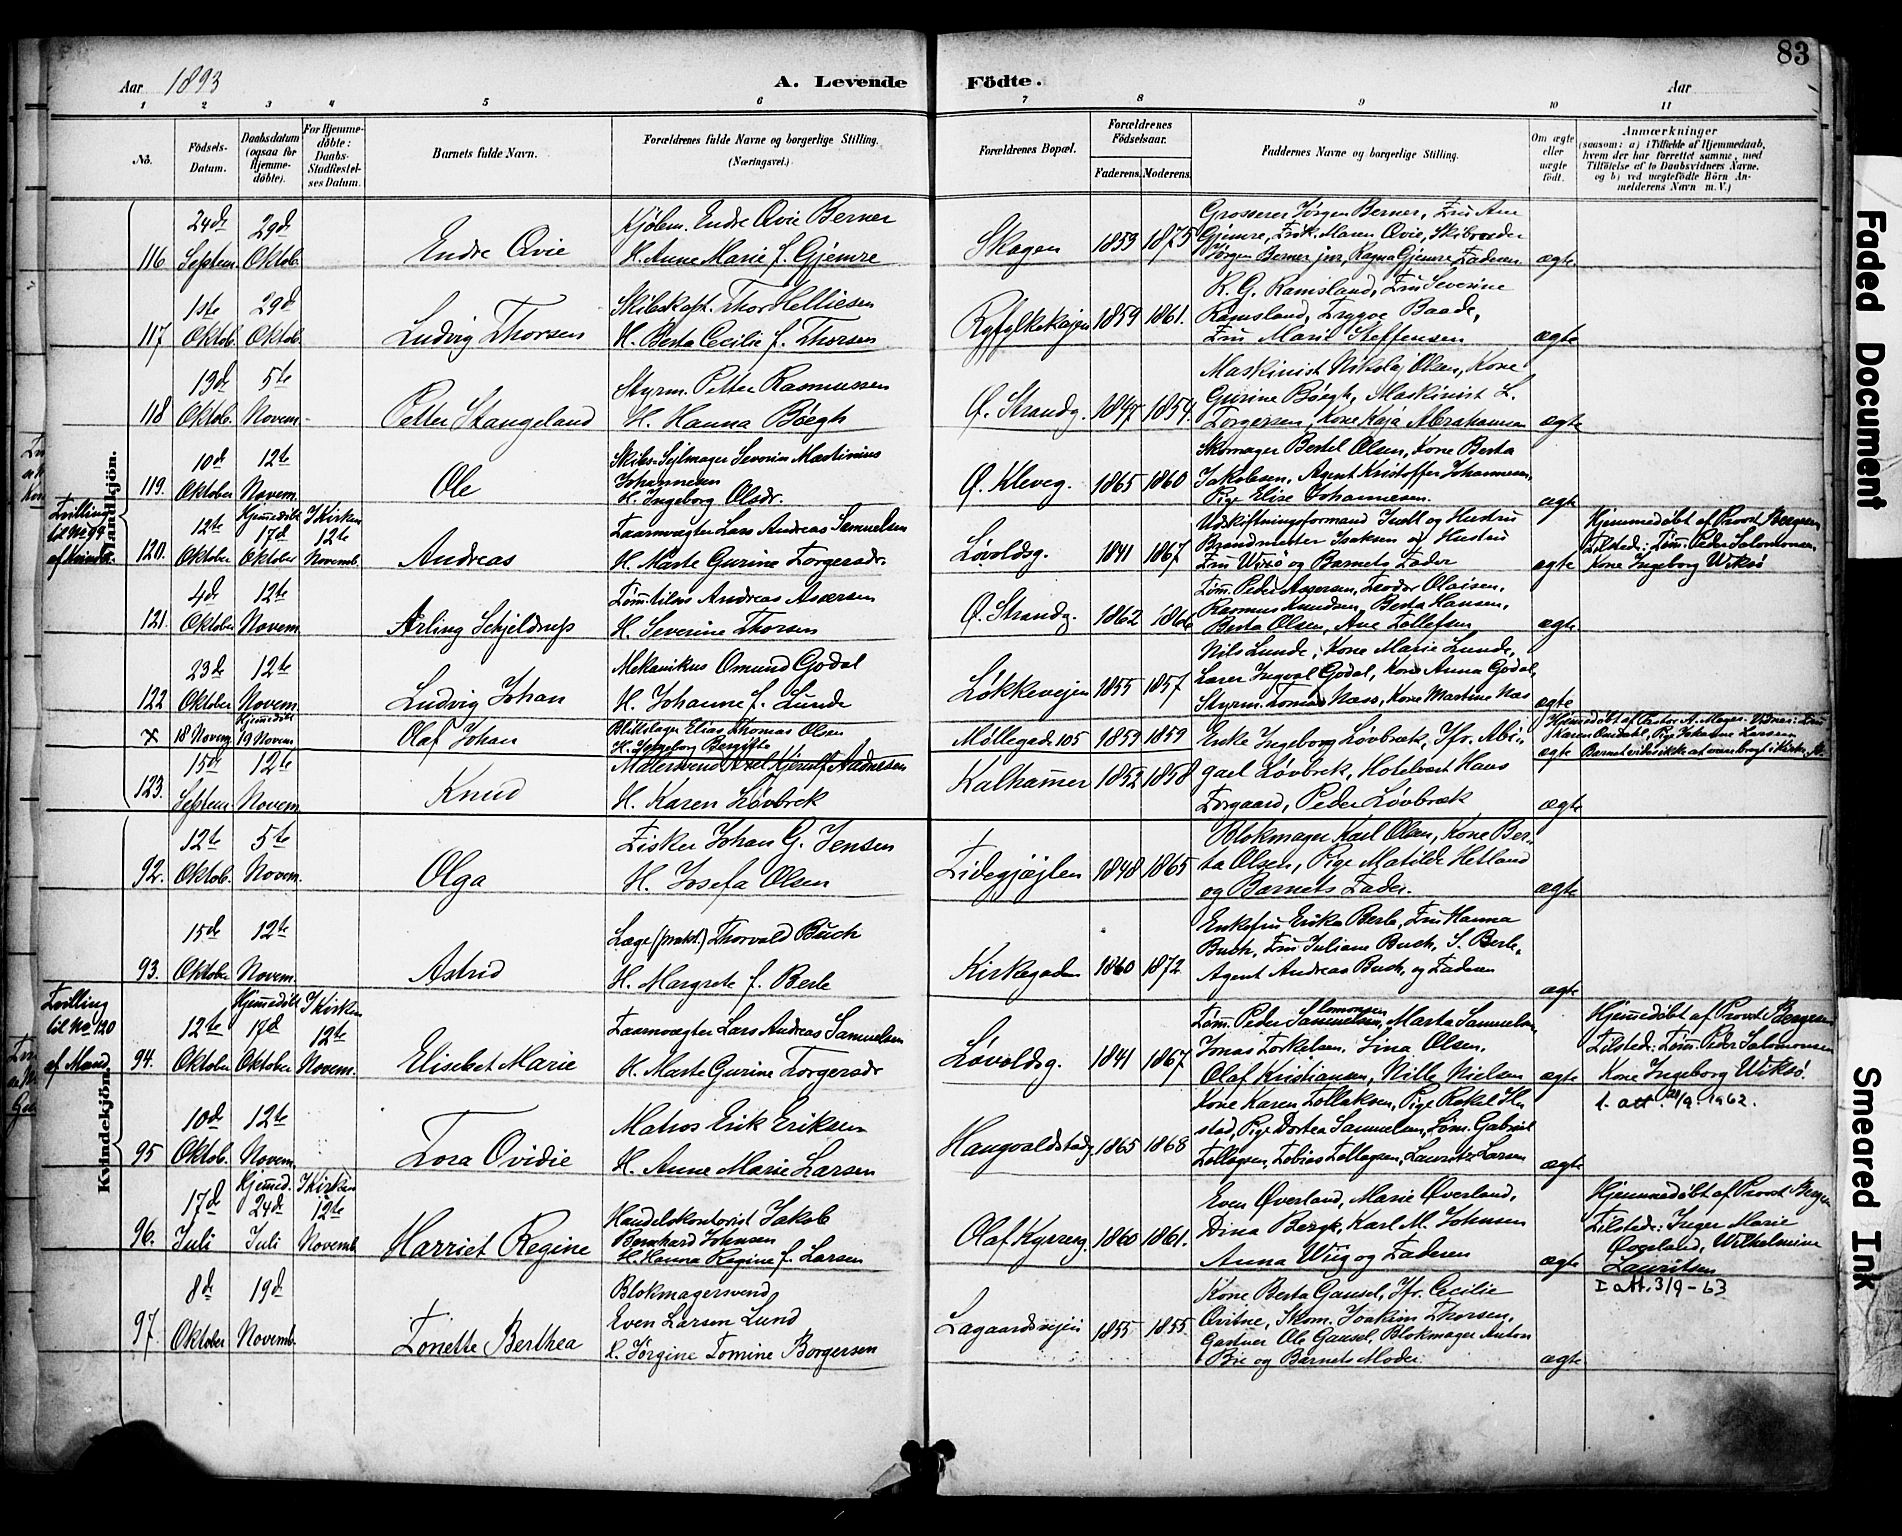 83
Aar 1893
A. Levende Födte.
Aar
1 2 3 4 5 6 7 8 9 10 11
No.
Födsels-Datum.
Daabsdatum (ogsaa for Hjemme-döbte).
For Hjemme-döbte: Daabs-Stadfæstel-ses Datum.
Barnets fulde Navn.
Forældrenes fulde Navne og borgerlige Stilling. (Næringsvei.)
Forældrenes Bopæl.
Forældrenes Födselsaar.
Faderens. Moderens.
Faddernes Navne og borgerlige Stilling.
Om ægte eller uægte født.
Anmærkninger
(saasom: a) i Tilfælde af Hjemmedaab, hvem der har forrettet samme, med Tilföielse af to Daabsvidners Navne. og b) ved uægtefödte Börn An-melderens Navn m. V.)
Mandkjön.
116 24de Septem. 29de Oktob. Endre Qvie
Kjøbm. Endre Qvie Berner
H. Anne Marie f. Gjemre
Skagen 1859 1875
Grosserer Jørgen Berner, Fru Ane
Gjemre, Frøk. Maren Qvie, Skibsreder
Jørgen Berner jun, Ragna Gjemre, Faderen
ægte
117 1ste Oktob. 29de Oktob. Ludvig Thorsen
Skibskapt. Thor Helliesen
H. Berta Cecilie f. Thorsen
Ryfylkekajen 1859 1861.
K. G. Ramsland, Fru Severine
Ramsland, Trygve Baade,
Fru Marie Steffensen
ægte
118 13de Oktob. 5te Novem. Petter Stangeland
Styrm. Petter Rasmussen
H. Hanna Bøegh
Ø. Strandg. 1847 1854.
Maskinist Nikolaj Olsen, Kone
Gurine Bøegh, Maskinist L.
Torgersen, Kone Kaja Abrahamsen
ægte
119. 10de Oktober 12te Novem. Ole
Skibs-Sejlmager Severin Martinius
Johannesen
H. Ingeborg Olsdr.
Ø. Kleveg. 1865 1860
Skomager Bertel Olsen, Kone Berta
Jakobsen, Agent Kristoffer Johannesen,
Pige Elise Johannesen.
ægte
Tvilling
til No 94
af Kvindk.
120. 12te Oktober Hjemmedøbt 17de Oktober I Kirken 12te Novemb. Andreas
Taarnvægter Lars Andreas Samuelsen
H. Marte Gurine Torgersdr.
Løvoldsg. 1841 1867
Udskiftningsformand Juell og Hustru
Brandmester Isaksen og Hustru
Fru Wiksø og Barnets Fader
ægte
Hjemmedøbt af Provst Bergesen
Tilsted: Tøm. Peder Salomonsen,
Kone Ingeborg Wiksø
121. 4de Oktober 12te Novem. Arling Schjeldrup
H. Severine Thorsen
Ø. Strandg. 1862 1866
Rasmus Knudsen, Berta Hansen,
Berta Olsen, Ane Tollefsen
ægte
122 23de Oktober 12te Novem. Ludvig Johan
Mekanikus Omund Godal
H. Johanne f. Lunde
Løkkevejen 1855 1857
Nils Lunde, Kone Marie Lunde,
Lærer Ingval Godal, Kone Anna Godal,
Styrm. Tomas Næss, Kone Martine Næs
ægte
x 18 Novem. Hjemmedøbt 19 Novem. Olaf Johan
Blikslager Elias Thomas Olsen
H. Ingeborg
Møllegad. 105 1859 1859
ægte
Hjemmedøbt af Pastor A. Meyer.
123. 15de Septem. 12te Novem. Knud
Malersvend Axel Hjerulf Aadnesen
H. Karen Løvbrek
Kalhammer 1852 1858
Enke Ingeborg Løvbræk, Jfr. Abi-
gael Løvbrek, Hotelvært Hans
Torgaard, Peder Løvbræk
ægte
Kvindekjön.
92. 12te Oktob. 5te Novem. Olga
Fisker Johan G. Jensen
H. Josefa Olsen
Tidegjæjlen 1848 1865
Blokmager Karl Olsen, Kone Ber-
ta Olsen, Pige Matilde Hetland
og Barnets Fader.
ægte
93. 15de Oktober 12te Novem. Astrid
Læge (prakt.) Thorvald Buch
H. Margrete f. Berle
Kirkegaden 1860 1872
Enkefru Erika Berle, Fru Hanna
Buch, Fru Juliane Buch, S. Berle,
Agent Andreas Buch, og Faderen
ægte
Tvilling
til No. 120
af Mand.
94. 12te Oktober Hjemmedøbt 17de Oktober I Kirken 12te Novem. Elisebet Marie
Taarnvægter Lars Andreas Samuelsen
H. Marte Gurine Torgersdr
Løvoldsg. 1841 1867
Tøm. Peder Salomonsen, Marta Samuelsen,
Jonas Torkelsen, Sina Olsen,
Olaf Kristiansen, Nille Nielsen
ægte
Hjemmedøbt af Provst Bergesen
Tilsted: Tøm. Peder Salomonsen
Kone Ingeborg Wiksø.
95 10de Oktob. 12te Novem. Tora Ovidie
Matros Erik Eriksen
H. Anne Marie Larsen
Haugvaldstadg. 1865 1868
stad, Pige Dortea Samuelsen, Tøm. Gabriel
Tollagsen, Tobias Tollagsen, Lauritz Larsen
ægte
1. att. /9. 1962.
96. 17de Juli Hjemmed. 24de Juli I Kirken 12te Novemb. Harriet Regine
Handelskontorist Jakob
Bernhard Johnsen
H. Hanna Regine f. Larsen
Olaf Kyrreg. 1860 1861.
Even Øverland, Marie Øverland,
Dina Bergh, Karl M. Johnsen
Anna Wiig og Faderen
ægte
Hjemmedøbt af Provst Bergesen
Tilsted: Inger Marie
Øverland, Wilhelmine
Lauritsen
I att. 3/9-63
97. 8de Oktober 19de Novemb. Tonette Berthea
Blokmagersvend
Even Larsen Lund
H. Jørgine Tomine Borgersen
Lagaardsvejen 1855 1855
Kone Berta Gausel, Jfr. Cecilie
Qvitne, Skom. Joakim Thorsen,
Gartner Ole Gausel, Blokmager Anton
Bie og Barnets Moder
ægte
Faded Document
Smeared Ink